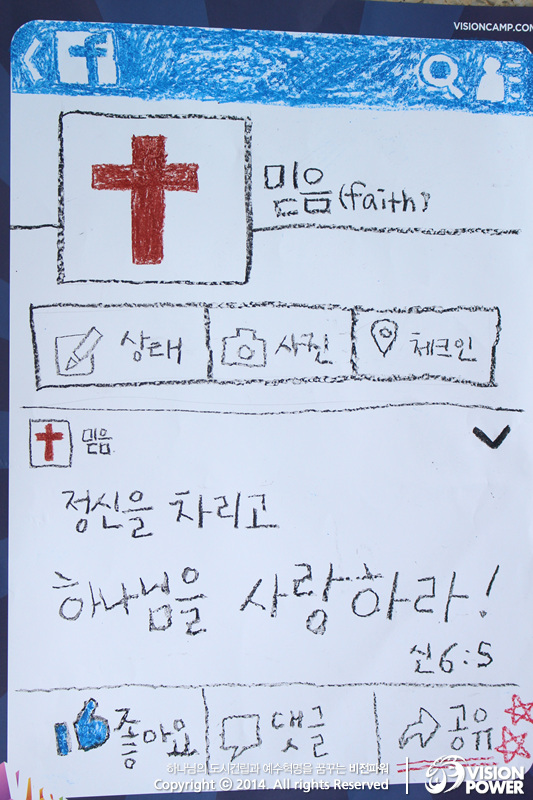 VISIONCAMP.COM
믿음(faith)
상태 사진 체크인
믿음
정신을 차리고
하나님을 사랑하라!
신6:5
좋아요 댓글 공유
하나님의 도시건립과 예수혁명을 꿈꾸는 비전파워
Copyright © 2014. All rights Reserved
VISION
POWER